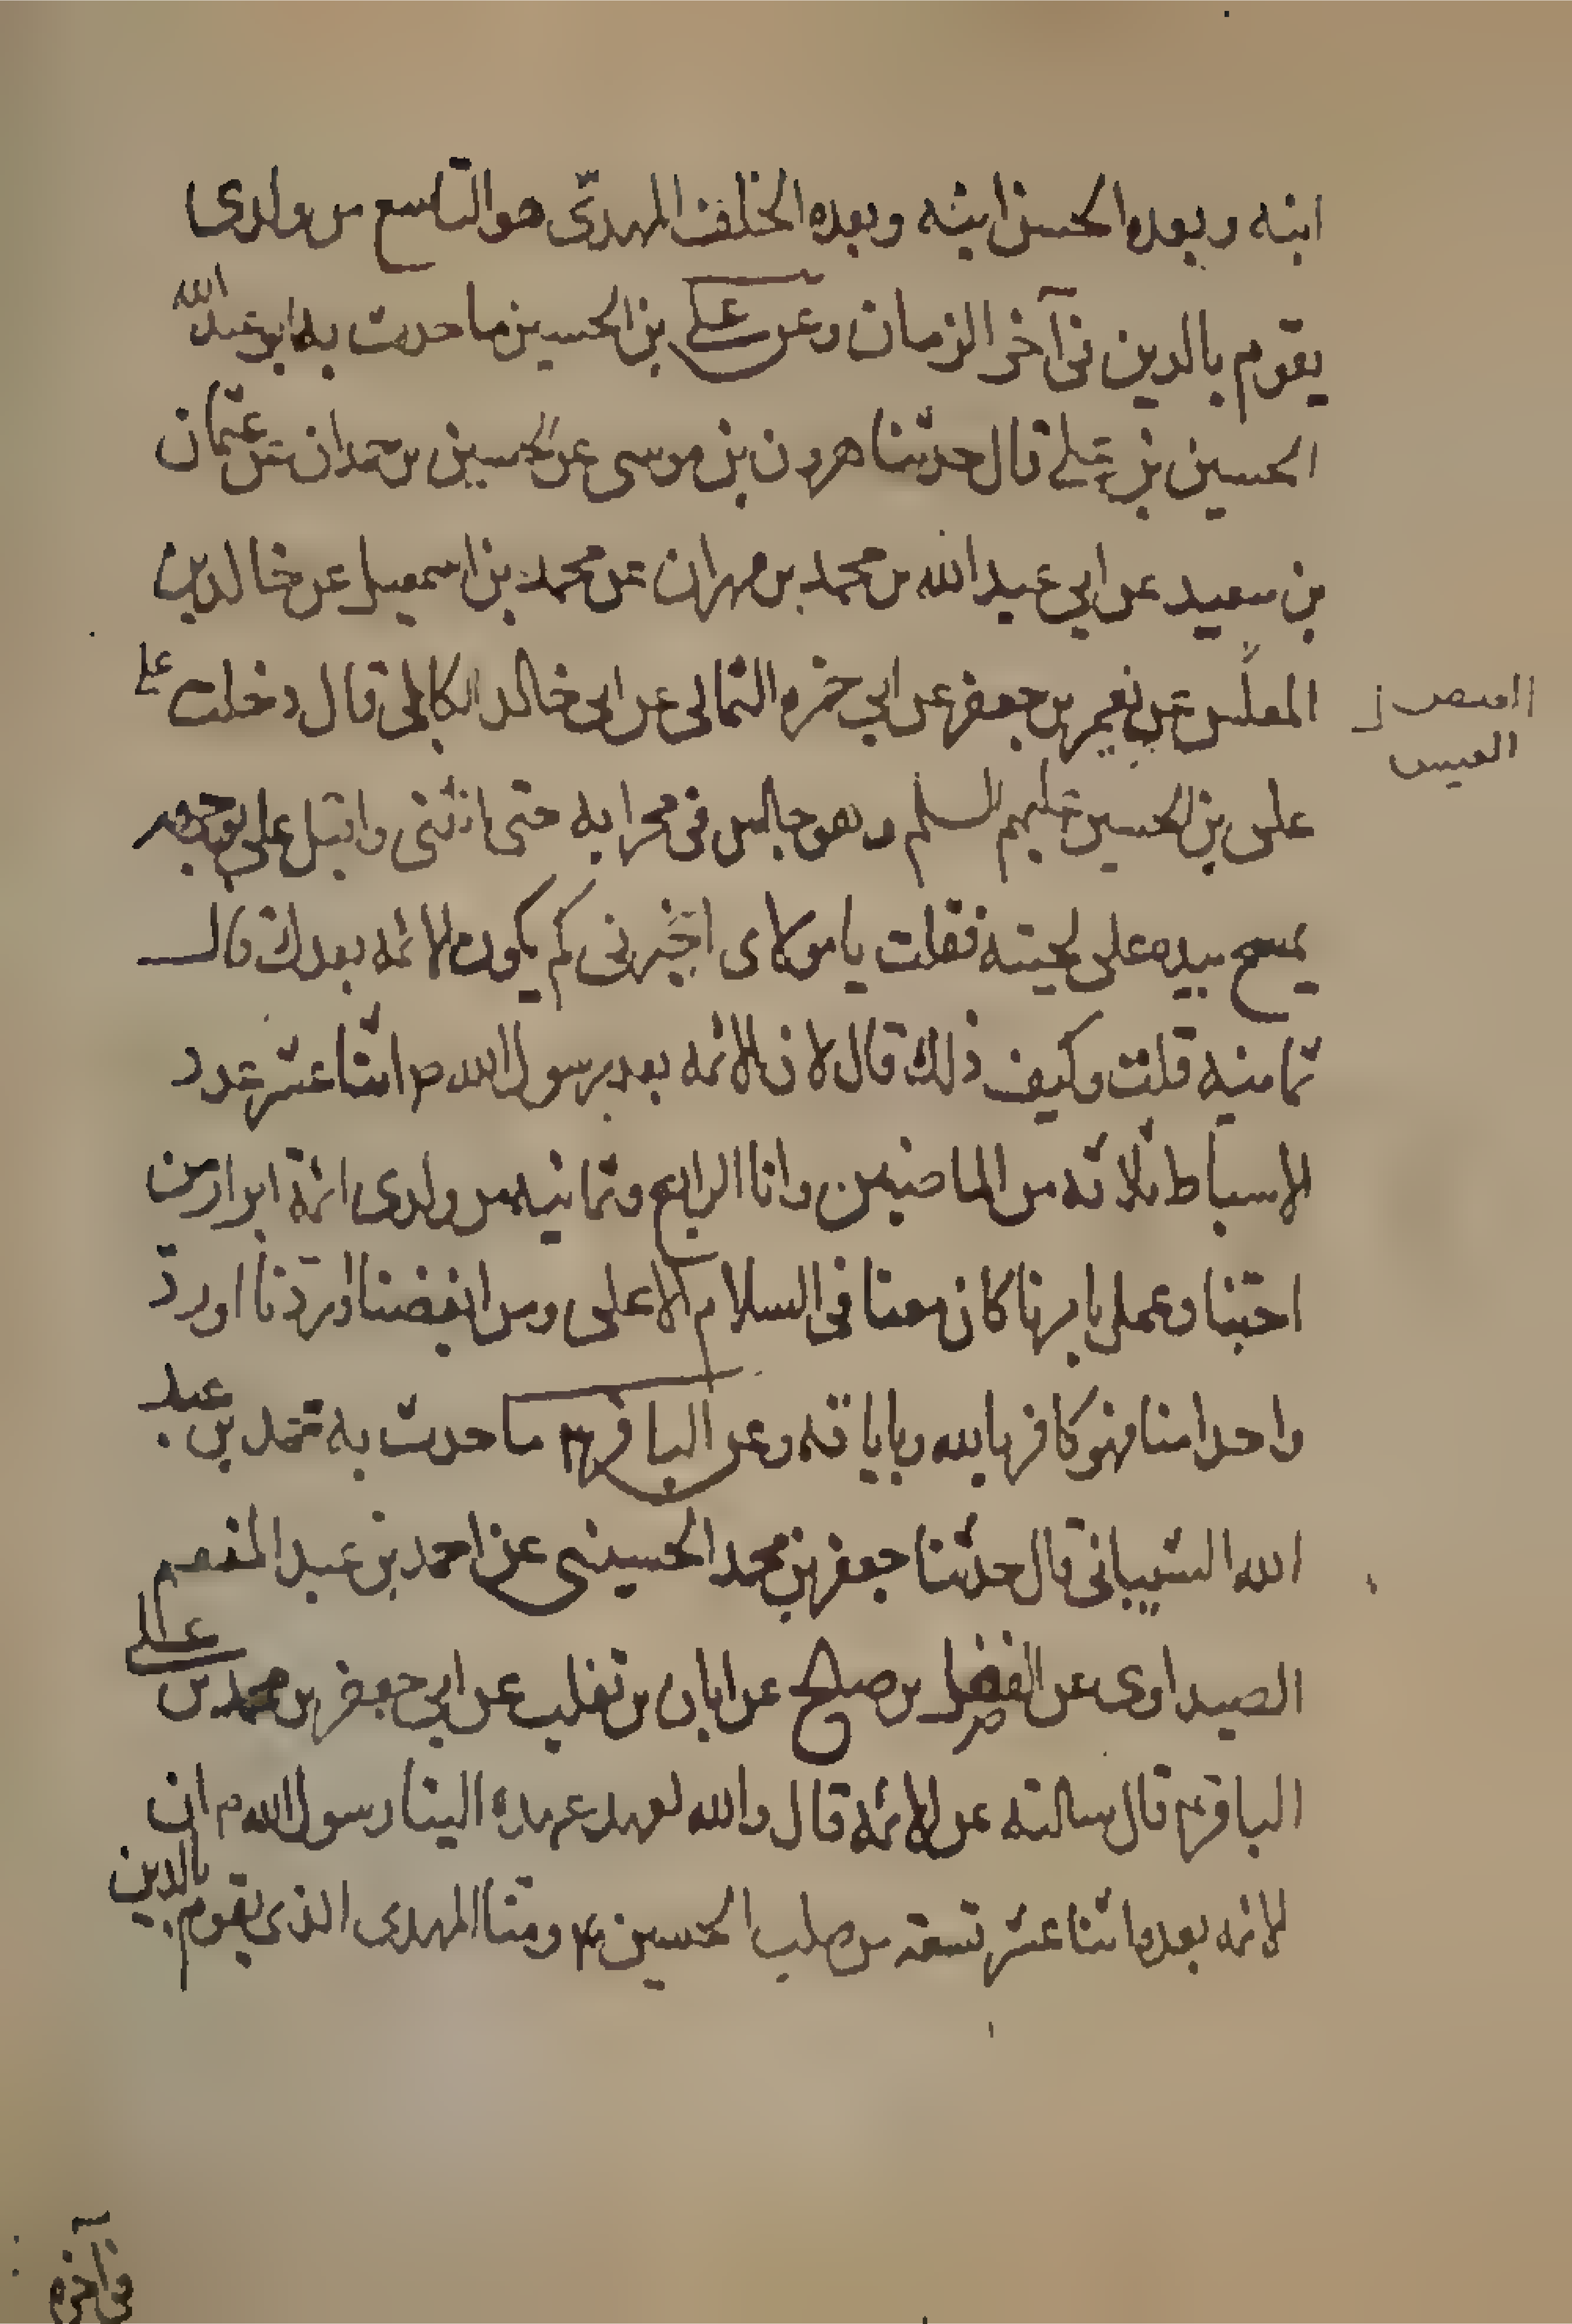 ابنه وبعده الحسن ابنه وبعده الخلف المهدى هو التاسع من ولدى
يقوم بالدين فى آخر الزمان وعن على بن الحسين ما حدث به ابو عبد الله
الحسين بن على قال حدثنا هرون بن موسى عن الحسين بن حمدان عن عثمان
بن سعيد عن ابي عبد الله بن محمد بن مهران عن محمد بن اسمعيل عن خالد بن
المغلس عن نعيم بن جعفر عن ابي حمزه الثمالى عن ابى خالد الكابلى قال دخلت على
على بن الحسين عليهم السلم وهو جالس فى محرابه حتى انثنى واقبل على بوجهه
يمسح بيده على لحيته فقلت يا مولاى اخبرنى كم يكون الائمه بعدك قال
ثمانيه قلت وكيف ذلك قال لان الائمه بعد رسول الله ص اثنا عشر عدد
الاسباط ثلاثه من الماضين وانا الرابع وثمانيه من ولدى ائمة ابرار من
احبنا وعمل بامرنا كان معنا فى السلام الاعلى ومن ابغضنا وردنا او رد
واحدا منا فهو كافر بالله وباياته وعن الباقر ع ما حدث به محمد بن عبد
الله الشيبانى قال حدثنا جعفر بن محمد الحسينى عن احمد بن عبد المنعم
الصيداوى عن المفضل بن صلح عن ابان بن تغلب عن ابي جعفر بن محمد بن على
الباقر ع قال سالته عن الائمه قال والله لعهد عهده الينا رسول الله ص ان
الائمه بعده اثنا عشر تسعة من صلب الحسين ع ومنا المهدى الذى يقوم بالدين
فى آخره